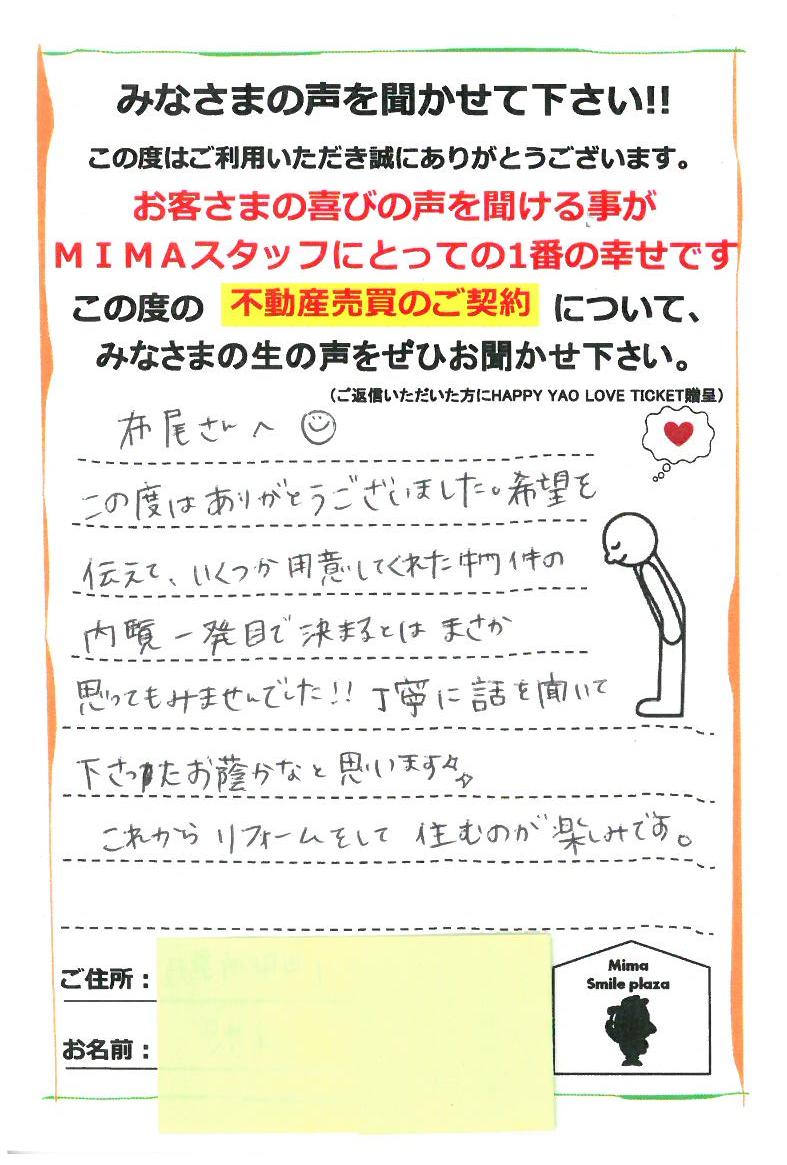 みなさまの声を聞かせて下さい!!
この度はご利用いただき誠にありがとうございます。
お客さまの喜びの声を聞ける事が
ＭＩＭＡスタッフにとっての1番の幸せです
この度の 不動産売買のご契約 について、
みなさまの生の声をぜひお聞かせ下さい。
（ご返信いただいた方にHAPPY YAO LOVE TICKET贈呈）
布尾さんへ
この度はありがとうございました。希望を
伝えて、いくつか用意してくれた物件の
内覧一発目で決まるとは まさか
思ってもみませんでした!! 丁寧に話を聞いて
下さったお蔭かなと思います
これからリフォームをして 住むのが楽しみです。
ご住所：
お名前：
Mima
Smile plaza